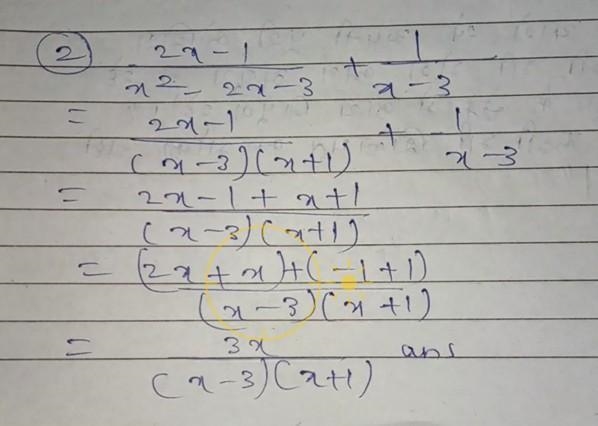 ② (2x-1)/(x²-2x-3) + 1/(x-3)
= (2x-1)/((x-3)(x+1)) + 1/(x-3)
= (2x-1+x+1)/((x-3)(x+1))
= ((2x+x)+(-1+1))/((x-3)(x+1))
= 3x/((x-3)(x+1)) ans